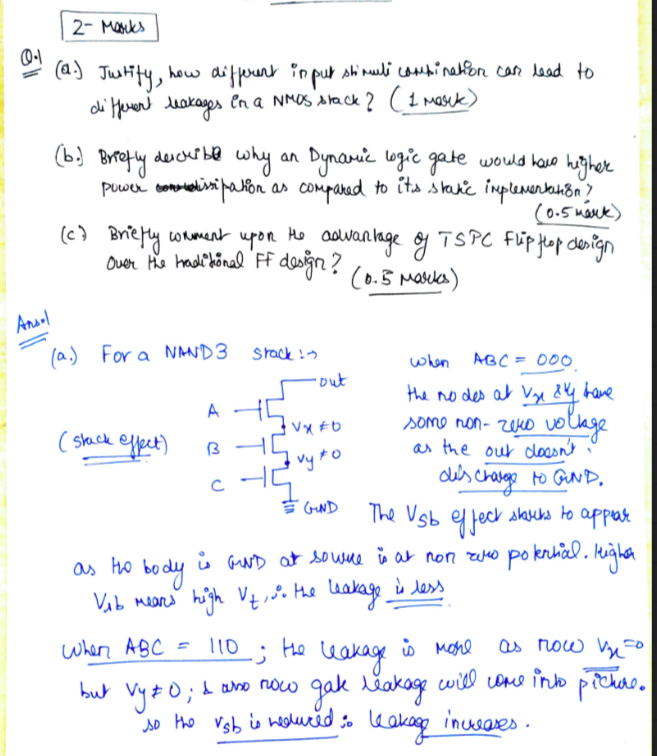 2- Marks
Q.1
(a.) Justify, how different input stimuli combination can lead to
different leakages in a NMOS stack? (1 mark)
(b.) Briefly describe why an Dynamic logic gate would have higher
power dissipation as compared to its static implementation?
(0.5 mark)
(c) Briefly comment upon the advantage of TSPC Flip flop design
over the traditional FF design? (0.5 Marks)
Ans.1
(a.) For a NAND3 stack :→
out
A
Vx ≠ 0
(stack effect)
B
Vy ≠ 0
C
GND
when ABC = 000
the nodes at Vx & Vy have
some non-zero voltage
as the out doesn't
discharge to GND.
The Vsb effect starts to appear
as the body is GND at source is at non zero potential. Higher
Vsb means high Vt, ∴ the leakage is less
when ABC = 110 ; the leakage is more as now Vx=0
but Vy≠0 ; & also now gate leakage will come into picture.
so the Vsb is reduced so leakage increases.